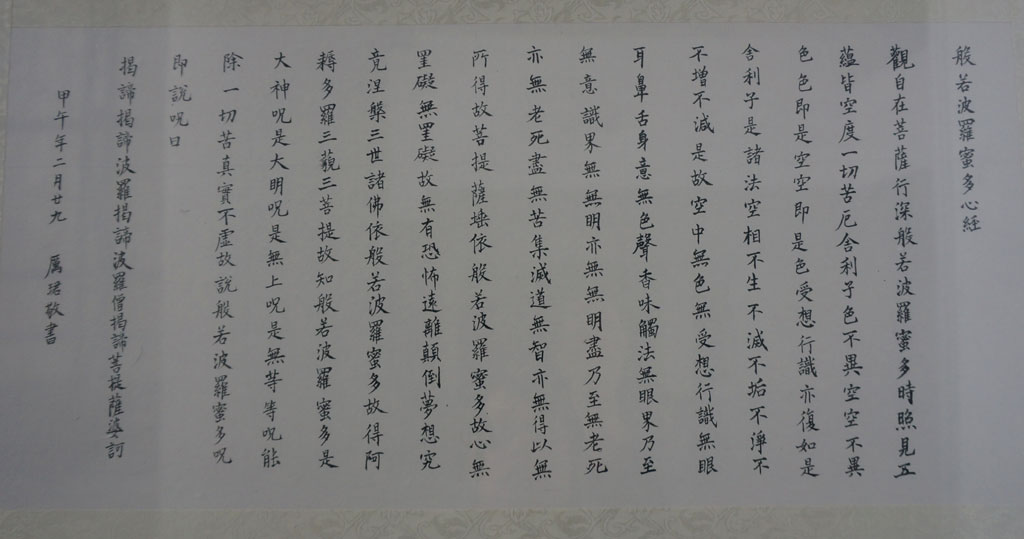 般若波羅蜜多心經
觀自在菩薩行深般若波羅蜜多時照見五
蘊皆空度一切苦厄舍利子色不異空空不異
色色即是空空即是色受想行識亦復如是
舍利子是諸法空相不生不滅不垢不淨不
不增不減是故空中無色無受想行識無眼
耳鼻舌身意無色聲香味觸法無眼界乃至
無意識界無無明亦無無明盡乃至無老死
亦無老死盡無苦集滅道無智亦無得以無
所得故菩提薩埵依般若波羅蜜多故心無
罣礙無罣礙故無有恐怖遠離顛倒夢想究
竟涅槃三世諸佛依般若波羅蜜多故得阿
耨多羅三藐三菩提故知般若波羅蜜多是
大神咒是大明咒是無上咒是無等等咒能
除一切苦真實不虛故說般若波羅蜜多咒
即說咒曰
揭諦揭諦波羅揭諦波羅僧揭諦菩提薩婆訶
甲午年二月廿九 厲珺敬書